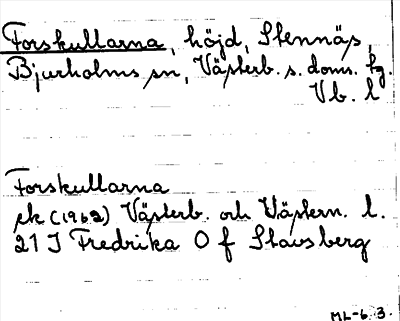 Forskullarna, höjd, Stennäs,
Bjurholms sn, Västerb. s. doms. fg.
Vb. l
Forskullarna
ek (1962) Västerb. och Västern. l.
21 J Fredrika O f Stavsberg
ML-6.3.